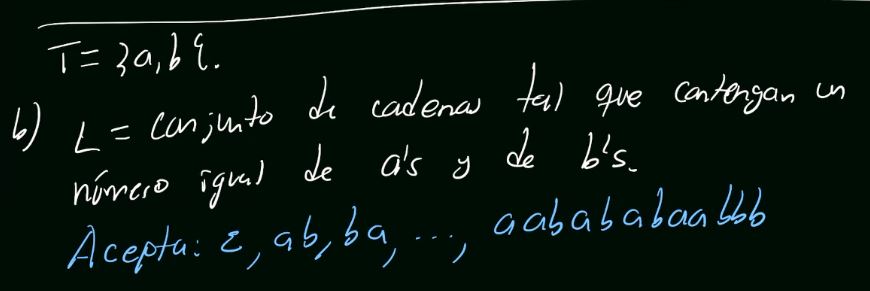 T = {a, b}.
b) L = conjunto de cadenas tal que contengan un
número igual de a's y de b's.
Acepta: ε, ab, ba, ..., aabababaabbb